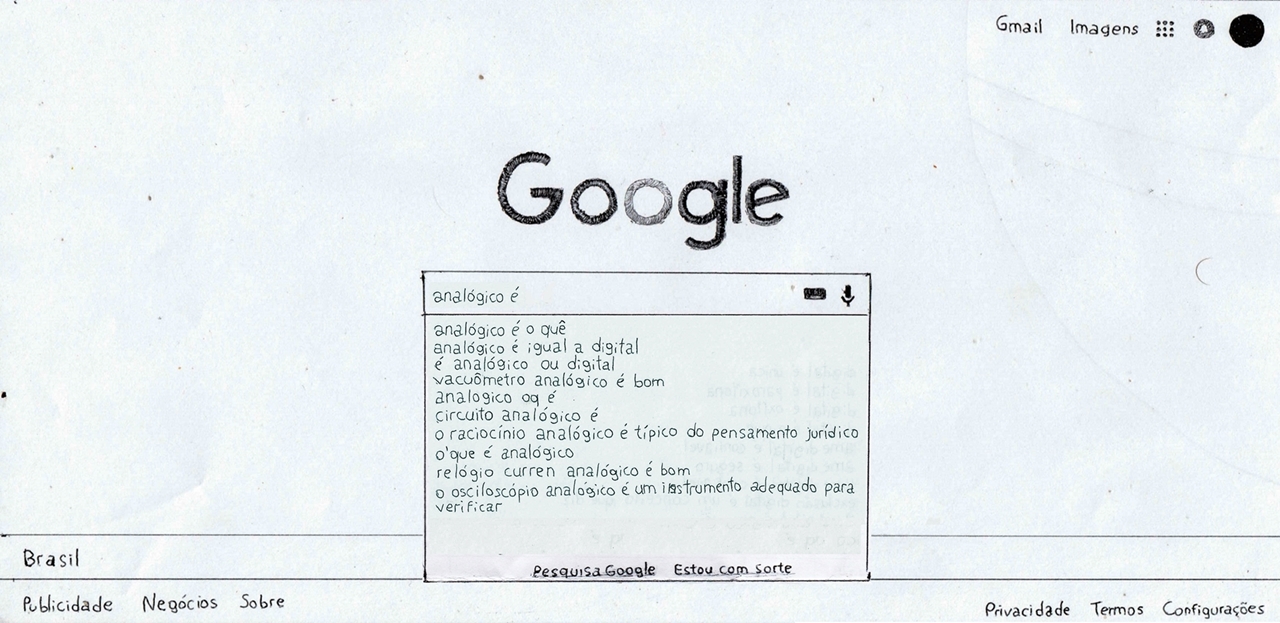 Gmail Imagens
Google
analógico é
analógico é o quê
analógico é igual a digital
é analógico ou digital
vacuômetro analógico é bom
analogico oq é
circuito analógico é
o raciocínio analógico é típico do pensamento jurídico
o'que é analógico
relógio curren analógico é bom
o osciloscópio analógico é um instrumento adequado para
verificar
Pesquisa Google Estou com Sorte
Brasil
Publicidade Negócios Sobre
Privacidade Termos Configurações